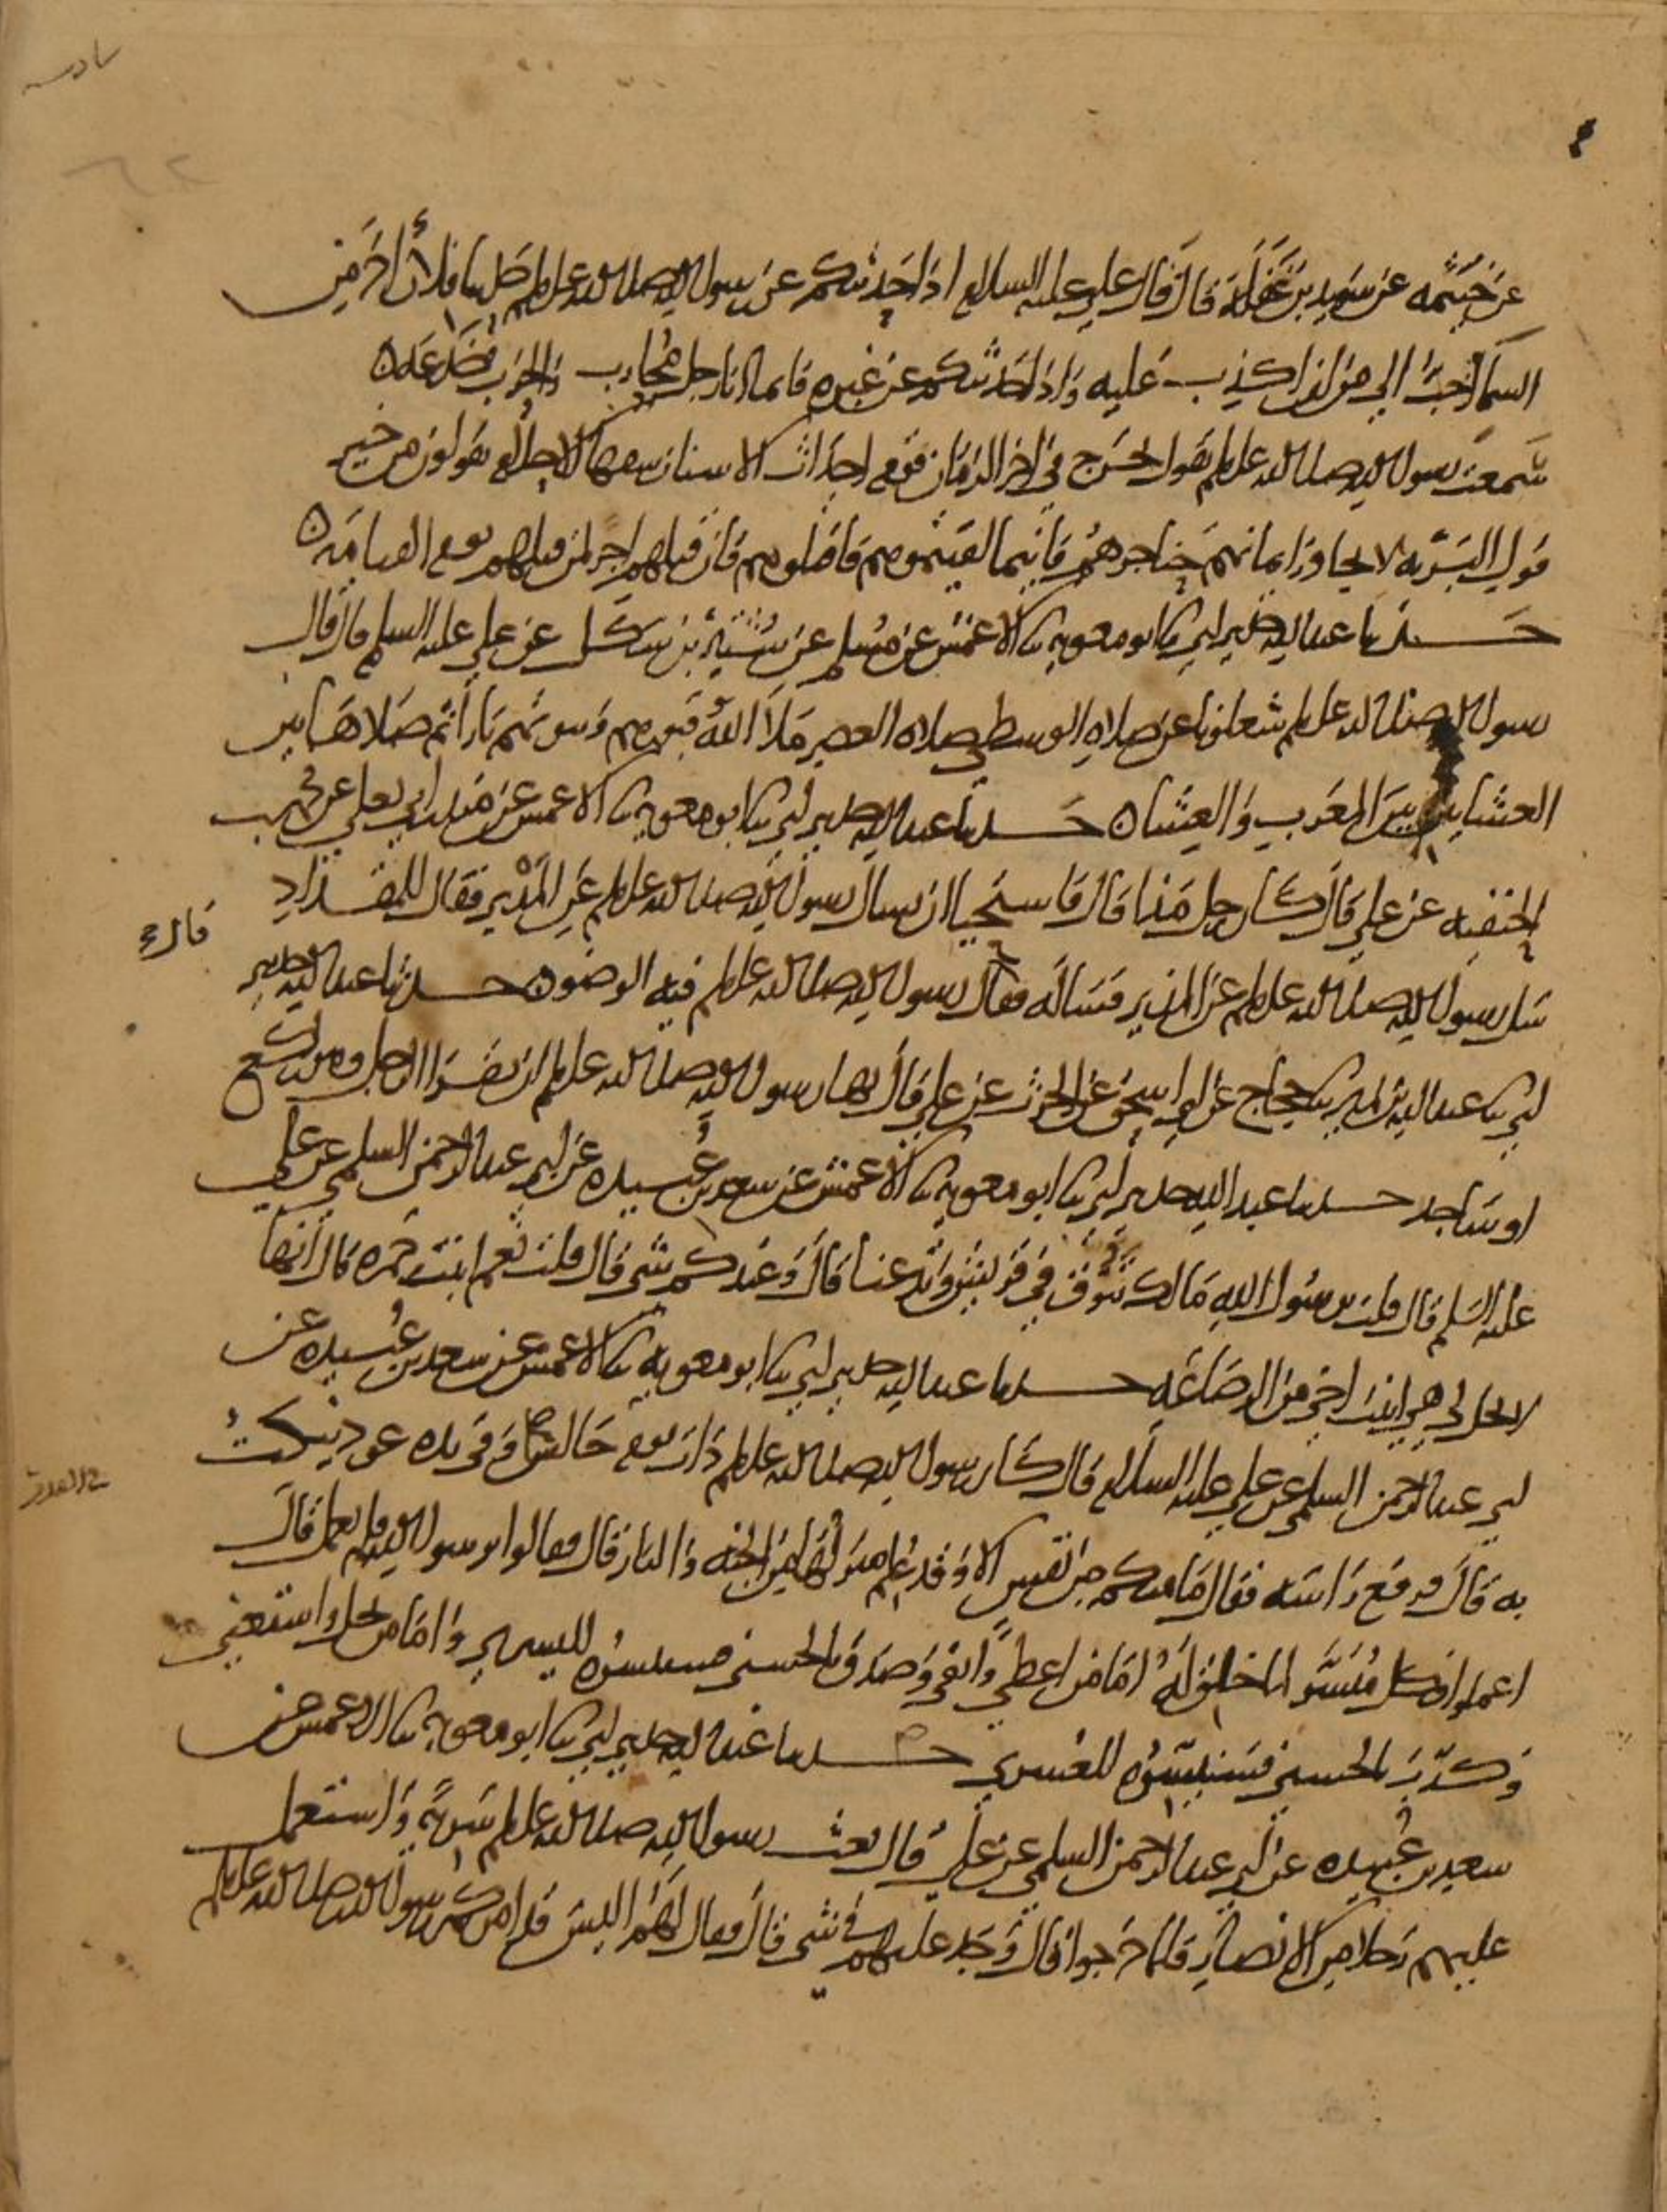 عن خيثمه عن سويد بن غفلة قال قال علي عليه السلام اذا حدثتكم عن رسول الله صلى الله عليه وسلم حديثا فلأن اخر من
السما احب الي من ان اكذب عليه واذا حدثتكم عن غيره فانما انا رجل محارب والحرب خدعه
سمعت رسول الله صلى الله عليه وسلم يقول يخرج في اخر الزمان قوم احداث الاسنان سفها الاحلام يقولون من خير
قول البريه لا يجاوز ايمانهم حناجرهم فاينما لقيتموهم فاقتلوهم فان قتلهم اجر لمن قتلهم يوم القيامه
حدثنا عبد الله حدثني ابي ثنا ابو معويه ثنا الاعمش عن مسلم عن شتير بن شكل عن علي عليه السلم قال قال
رسول الله صلى الله عليه وسلم شغلونا عن صلاه الوسطى صلاه العصر ملأ الله قبورهم وبيوتهم نارا ثم صلاها بين
العشاين بين المغرب والعشا حدثنا عبد الله حدثني ابي ثنا ابو معويه ثنا الاعمش عن منذر ابي يعلى عن محمد بن
الحنفيه عن علي قال كان رجل مذا قال فاستحيا ان يسال رسول الله صلى الله عليه وسلم عن المذي فقال للمقداد
قال
سل رسول الله صلى الله عليه وسلم عن المذي فساله فقال رسول الله صلى الله عليه وسلم فيه الوضو حدثنا عبد الله حدثني
ابي ثنا عبد الله بن نمير ثنا حجاج عن ابي اسحق عن الحرث عن علي قال نهى رسول الله صلى الله عليه وسلم ان يقرا الرجل وهو راكع
او ساجد حدثنا عبد الله حدثني ابي ثنا ابو معويه ثنا الاعمش عن سعد بن عبيده عن ابي عبد الرحمن السلمي عن علي
عليه السلم قال قلت يرسول الله مالك تنوق في قريش وتدعنا قال وعندكم شي قال قلت نعم ابنت حمزه قال انها
لا تحل لي هي ابنت اخي من الرضاعه حدثنا عبد الله حدثني ابي ثنا ابو معويه ثنا الاعمش عن سعد بن عبيده عن
ابي عبد الرحمن السلمي عن علي عليه السلام قال كان رسول الله صلى الله عليه وسلم ذات يوم جالسا وفي يده عود ينكت
به قال فرفع راسه فقال ما منكم من نفس الا وقد علم منزلها من الجنه والنار قال فقالوا يرسول الله فلم نعمل قال
اعملوا فكل ميسر لما خلق له اما من اعطى واتقى وصدق بالحسنى فسنيسره لليسرى واما من بخل واستغنى
وكذب بالحسنى فسنيسره للعسرى حدثنا عبد الله حدثني ابي ثنا ابو معويه ثنا الاعمش عن
سعد بن عبيده عن ابي عبد الرحمن السلمي عن علي قال بعث رسول الله صلى الله عليه وسلم سرية واستعمل
عليهم رجلا من الانصار فلما خرجوا قال وجد عليهم في شي قال فقال لهم اليس قد امركم رسول الله صلى الله عليه وسلم